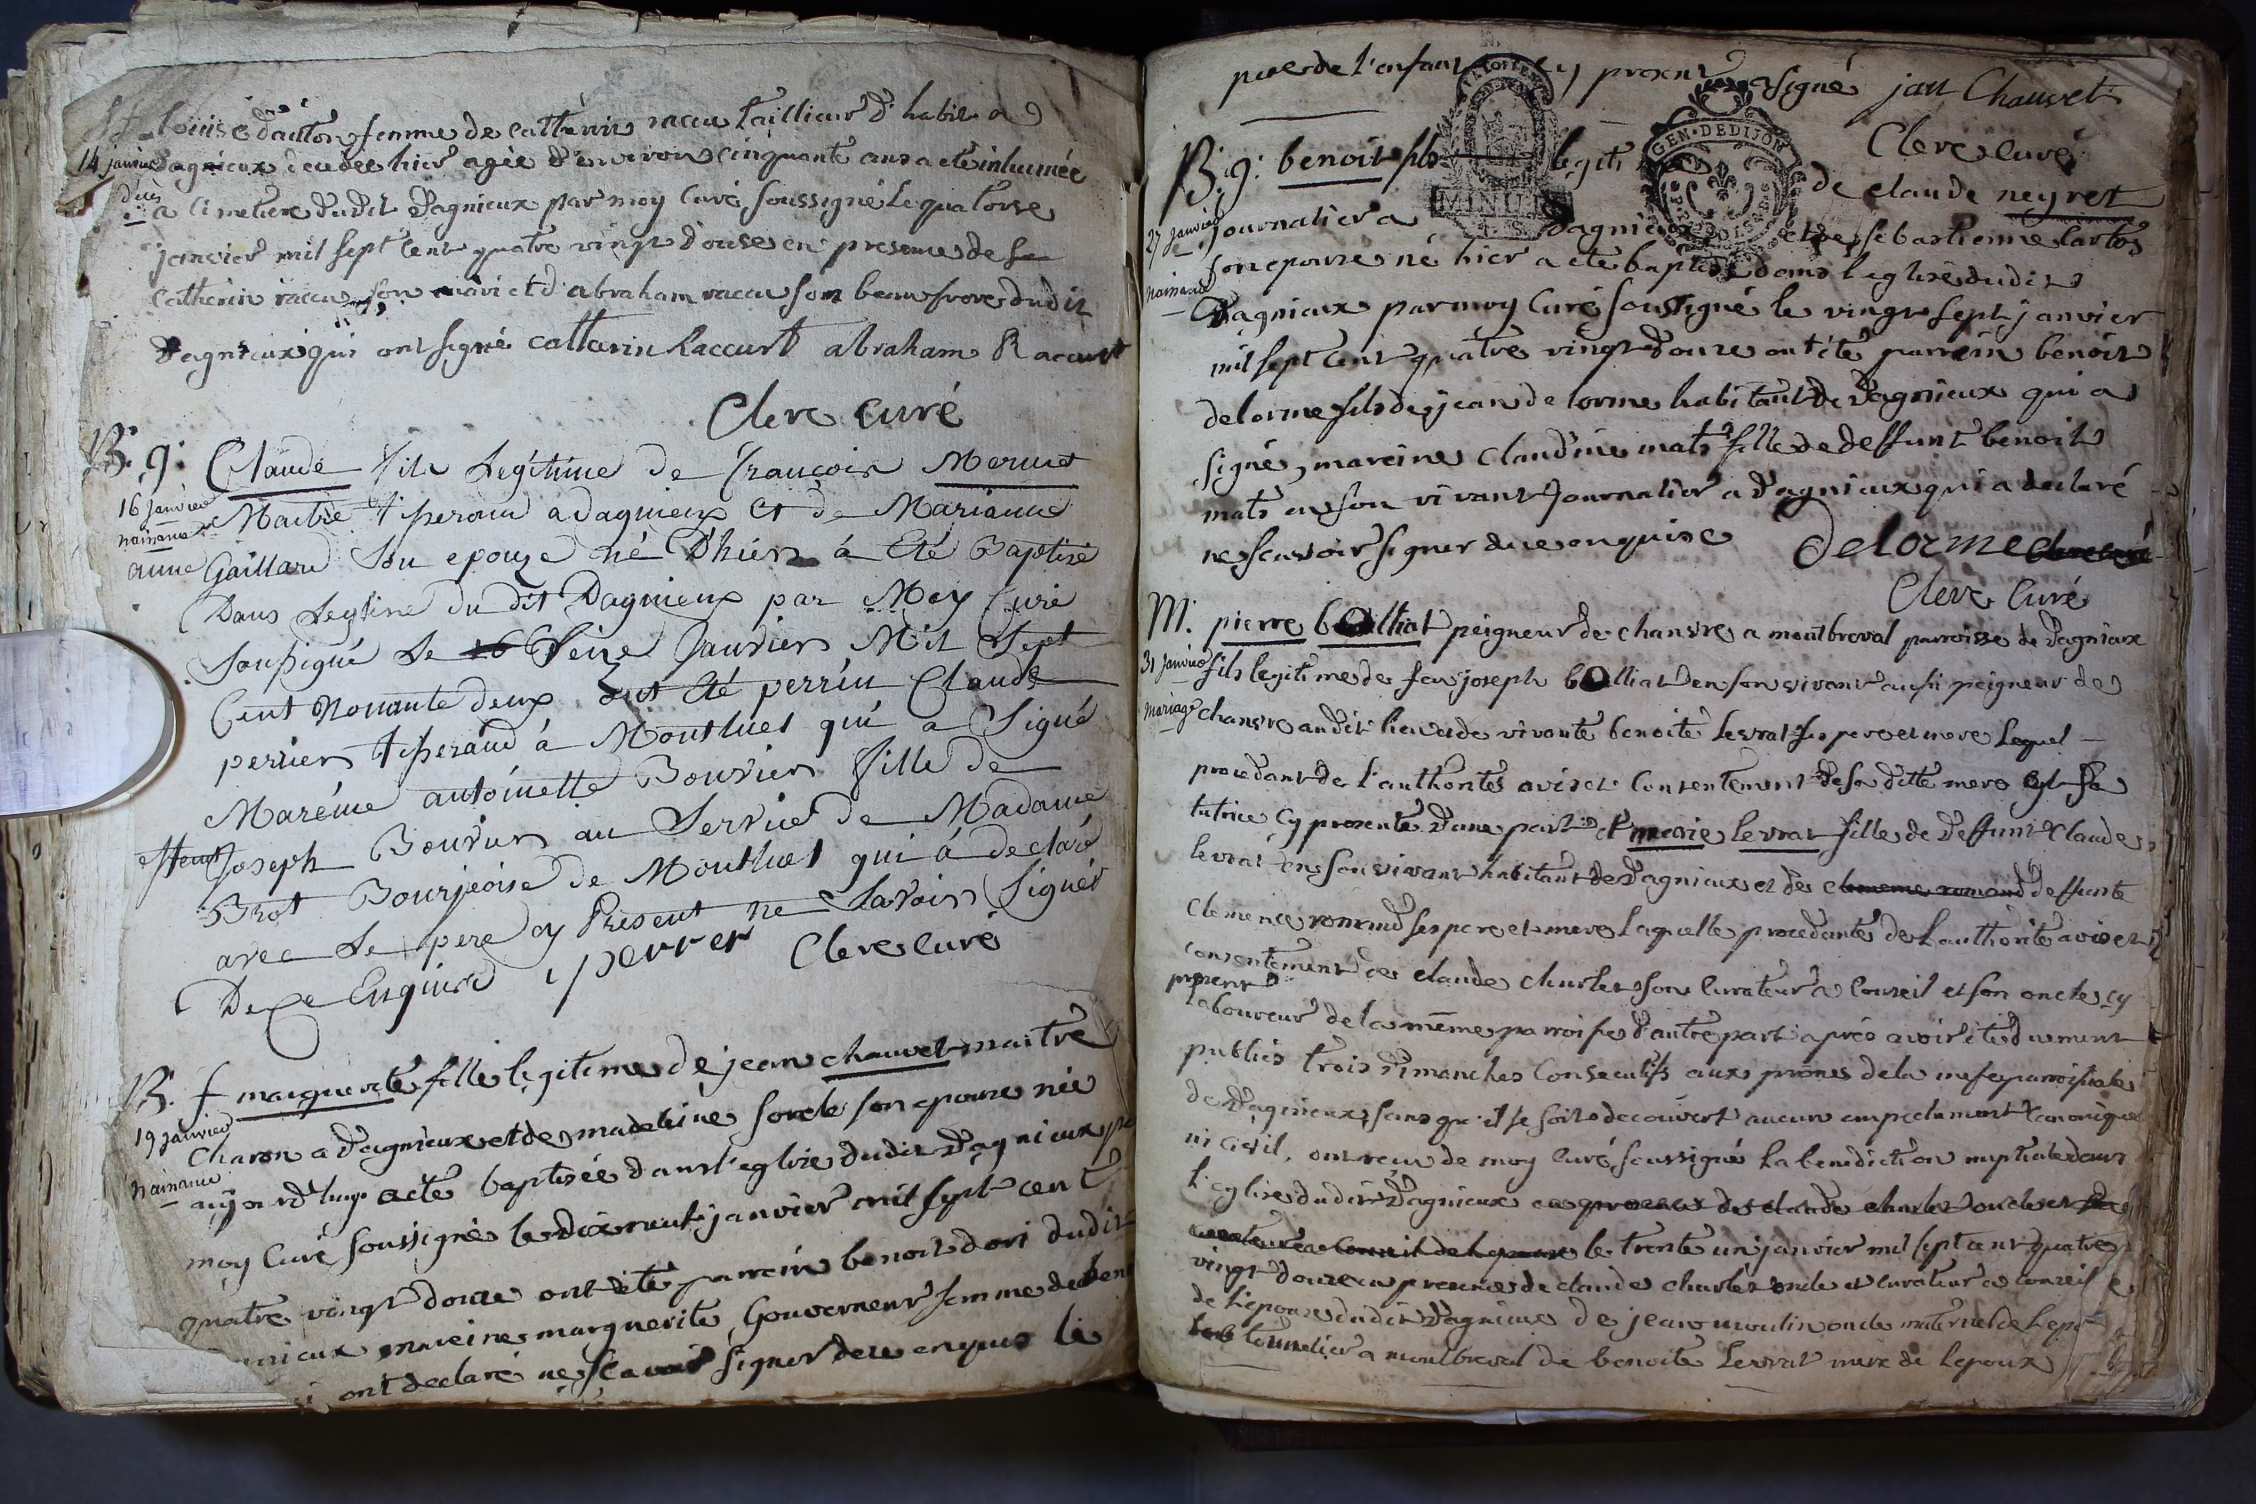 S.f. Louise d'anton femme de catherin raceu tailleur d'habit a
14 janvier
d'agnieux decedée hier agée d'environ cinquante ans a eté inhumée
décès
a cimetiere dudit d'agnieux par moy curé soussigné le quatorze
janvier mil sept cent quatre vingt douze en presence de
catherin raceu son mari et d'abraham racau son beau frere dudit
d'agnieux qui ont signé catherin Raccurt abraham Racurt
Clerc curé
B. g: Claude fils Legitime de françois Mornet
16 janvier
naissance
Maitre tisserand a dagnieux et de Marianne
anne Gaillard son epouze né D'hier à Eté Baptisé
Dans Leglise du dit Dagnieux par Moy Curé
soussigné Le 16 Seize Janvier Mil Sept
Cent Nonante deux ont Eté perrin Claude
perrier tisserand à Montluel qui a Signé
Marenne antoinette Bouvier fille de
Joseph Bouvier au Service de Madame
Brot Bourjeoise de Montluel qui à declaré
avec Le pere cy Present ne Savoir Signer
De Ce Enquird perrer Clerc curé
B. f marguerite fille legitime de jean chauvet maitre
19 janvier
charon a d'agnieux et de madeleine sorele son epouze née
naissance
aujourd'huy a eté baptisée dans l'eglise dudit d'agnieux par
moy curé soussigné le dix neuf janvier mil sept cent
quatre vingt douze ont eté parrein benoit dori dudit
mareine marguerite Gouverneur femme de
ont declaré ne scavoir signer de ce enquis le
pere de l'enfant cy present a signé jan Chauvet
Clerc curé
B. g: benoit fils legiti de claude neyret
27 janvier
journalier a d'agnieux et de sebastienne cartos
naissance
son epouse né hier a eté baptisé dans l'eglise dudit
d'agnieux par moy curé soussigné le vingt sept janvier
mil sept cent quatre vingt douze ont eté parrein benoit
delorme fils de jean de lorme habitant de d'agnieux qui a
signé, mareine claudine mats fille de deffunt benoit
mats en son vivant journalier a d'agnieux qui a declaré
ne scavoir signer de ce enquise Delorme clerc curé
Clerc Curé
M. pierre bolliat peigneur de chanvre a montbreval parroisse de d'agnieux
31 janvier
fils legitime de feu joseph bolliat en son vivant aussi peigneur de
mariage
chanvre audit lieu et de vivante benoite levrat ses pere et mere lequel
procedant de l'authorité avis et consentement de sa ditte mere et sa
tutrice cy presente d'une part et marie levrat fille de deffunt claude
levrat en son vivant habitant de d'agnieux et de clemence romand deffunte
clemence romand ses pere et mere laquelle procedante de l'authorité avis et
consentement de claude charlet son curateur a conseil et son oncle cy
present
laboureur de la même parroisse d'autre part aprés avoir eté duement
publiés trois dimanches consecutifs aux prônes de la messe parroissiale
de d'agnieux sans qu'il se soit decouvert aucun empechement canonique
ni civil, ont recu de moy curé soussigné la benediction nuptiale dans
l'eglise dudit d'agnieux en presence de claude charlet oncle et
curateur a conseil de le trente un janvier mil sept cent quatre
vingt douze en presence de claude charlet oncle et curateur a conseil
de l'epouse dudit d'agnieux de jean moulin oncle maternel de l'ep
tonnelier a montbreval de benoite levrat mere de lepoux
GEN·DEDIJON
MINUT